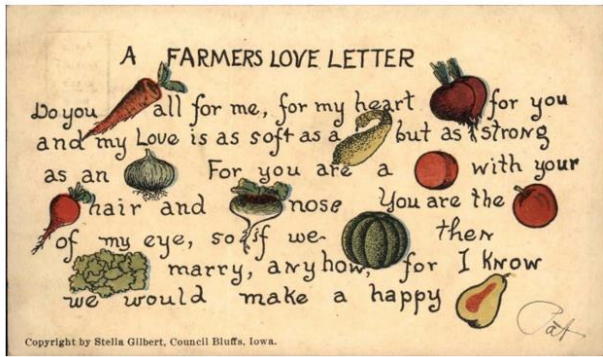 A FARMERS LOVE LETTER
Do you all for me, for my heart for you
and my Love is as soft as a but as strong
as an For you are a with your
hair and nose You are the
of my eye, so if we then
marry, anyhow, for I know
we would make a happy
Pat
Copyright by Stella Gilbert, Council Bluffs, Iowa.